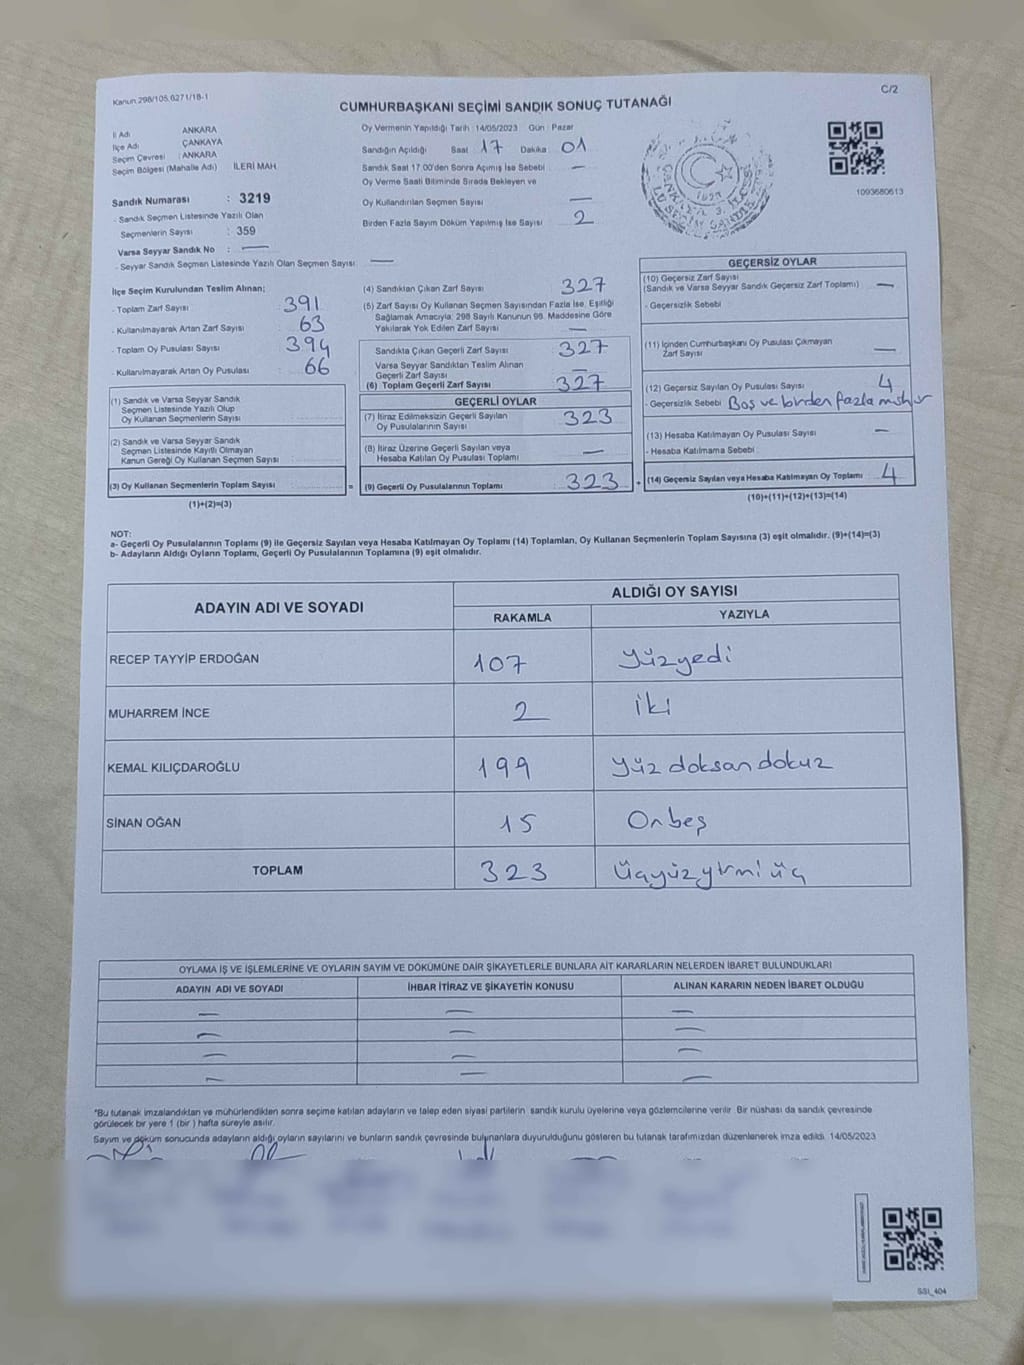 Kanun 298/105,6271/18-1
C/2
CUMHURBAŞKANI SEÇİMİ SANDIK SONUÇ TUTANAĞI
İl Adı ANKARA
İlçe Adı ÇANKAYA
Seçim Çevresi : ANKARA
Seçim Bölgesi (Mahalle Adı) İLERİ MAH.
Sandık Numarası : 3219
- Sandık Seçmen Listesinde Yazılı Olan
Seçmenlerin Sayısı : 359
Varsa Seyyar Sandık No : —
- Seyyar Sandık Seçmen Listesinde Yazılı Olan Seçmen Sayısı —
Oy Vermenin Yapıldığı Tarih : 14/05/2023 Gün : Pazar
Sandığın Açıldığı Saat 17 Dakika 01
Sandık Saat 17.00'den Sonra Açımış İse Sebebi —
Oy Verme Saati Bitiminde Sırada Bekleyen ve
Oy Kullandırılan Seçmen Sayısı —
Birden Fazla Sayım Döküm Yapılmış İse Sayısı 2
1923
1093680613
İlçe Seçim Kurulundan Teslim Alınan;
- Toplam Zarf Sayısı 391
- Kullanılmayarak Artan Zarf Sayısı 63
- Toplam Oy Pusulası Sayısı 394
- Kullanılmayarak Artan Oy Pusulası 66
(1) Sandık ve Varsa Seyyar Sandık
Seçmen Listesinde Yazılı Olup
Oy Kullanan Seçmenlerin Sayısı
(2) Sandık ve Varsa Seyyar Sandık
Seçmen Listesinde Kayıtlı Olmayan
Kanun Gereği Oy Kullanan Seçmen Sayısı
(3) Oy Kullanan Seçmenlerin Toplam Sayısı =
(1)+(2)=(3)
(4) Sandıktan Çıkan Zarf Sayısı 327
(5) Zarf Sayısı Oy Kullanan Seçmen Sayısından Fazla İse, Eşitliği
Sağlamak Amacıyla; 298 Sayılı Kanunun 98. Maddesine Göre
Yakılarak Yok Edilen Zarf Sayısı —
Sandıkta Çıkan Geçerli Zarf Sayısı 327
Varsa Seyyar Sandıktan Teslim Alınan
Geçerli Zarf Sayısı —
(6) Toplam Geçerli Zarf Sayısı 327
GEÇERLİ OYLAR
(7) İtiraz Edilmeksizin Geçerli Sayılan
Oy Pusulalarının Sayısı 323
(8) İtiraz Üzerine Geçerli Sayılan veya
Hesaba Katılan Oy Pusulası Toplamı —
(9) Geçerli Oy Pusulalarının Toplamı 323 +
GEÇERSİZ OYLAR
(10) Geçersiz Zarf Sayısı
(Sandık ve Varsa Seyyar Sandık Geçersiz Zarf Toplamı) —
- Geçersizlik Sebebi
(11) İçinden Cumhurbaşkanı Oy Pusulası Çıkmayan
Zarf Sayısı —
(12) Geçersiz Sayılan Oy Pusulası Sayısı 4
- Geçersizlik Sebebi Boş ve birden fazla mühür
(13) Hesaba Katılmayan Oy Pusulası Sayısı —
- Hesaba Katılmama Sebebi
(14) Geçersiz Sayılan veya Hesaba Katılmayan Oy Toplamı 4
(10)+(11)+(12)+(13)=(14)
NOT:
a- Geçerli Oy Pusulalarının Toplamı (9) ile Geçersiz Sayılan veya Hesaba Katılmayan Oy Toplamı (14) Toplamları, Oy Kullanan Seçmenlerin Toplam Sayısına (3) eşit olmalıdır. (9)+(14)=(3)
b- Adayların Aldığı Oyların Toplamı, Geçerli Oy Pusulalarının Toplamına (9) eşit olmalıdır.
ADAYIN ADI VE SOYADI ALDIĞI OY SAYISI
RAKAMLA YAZIYLA
RECEP TAYYİP ERDOĞAN 107 yüzyedi
MUHARREM İNCE 2 iki
KEMAL KILIÇDAROĞLU 199 yüz doksan dokuz
SİNAN OĞAN 15 Onbeş
TOPLAM 323 üçyüzyirmi üç
OYLAMA İŞ VE İŞLEMLERİNE VE OYLARIN SAYIM VE DÖKÜMÜNE DAİR ŞİKAYETLERLE BUNLARA AİT KARARLARIN NELERDEN İBARET BULUNDUKLARI
ADAYIN ADI VE SOYADI İHBAR İTİRAZ VE ŞİKAYETİN KONUSU ALINAN KARARIN NEDEN İBARET OLDUĞU
— — —
— — —
— — —
— — —
"Bu tutanak imzalandıktan ve mühürlendikten sonra seçime katılan adayların ve talep eden siyasi partilerin sandık kurulu üyelerine veya gözlemcilerine verilir. Bir nüshası da sandık çevresinde
görülecek bir yere 1 (bir) hafta süreyle asılır.
Sayım ve döküm sonucunda adayların aldığı oyların sayılarını ve bunların sandık çevresinde bulunanlara duyurulduğunu gösteren bu tutanak tarafımızdan düzenlenerek imza edildi. 14/05/2023
SSI_404